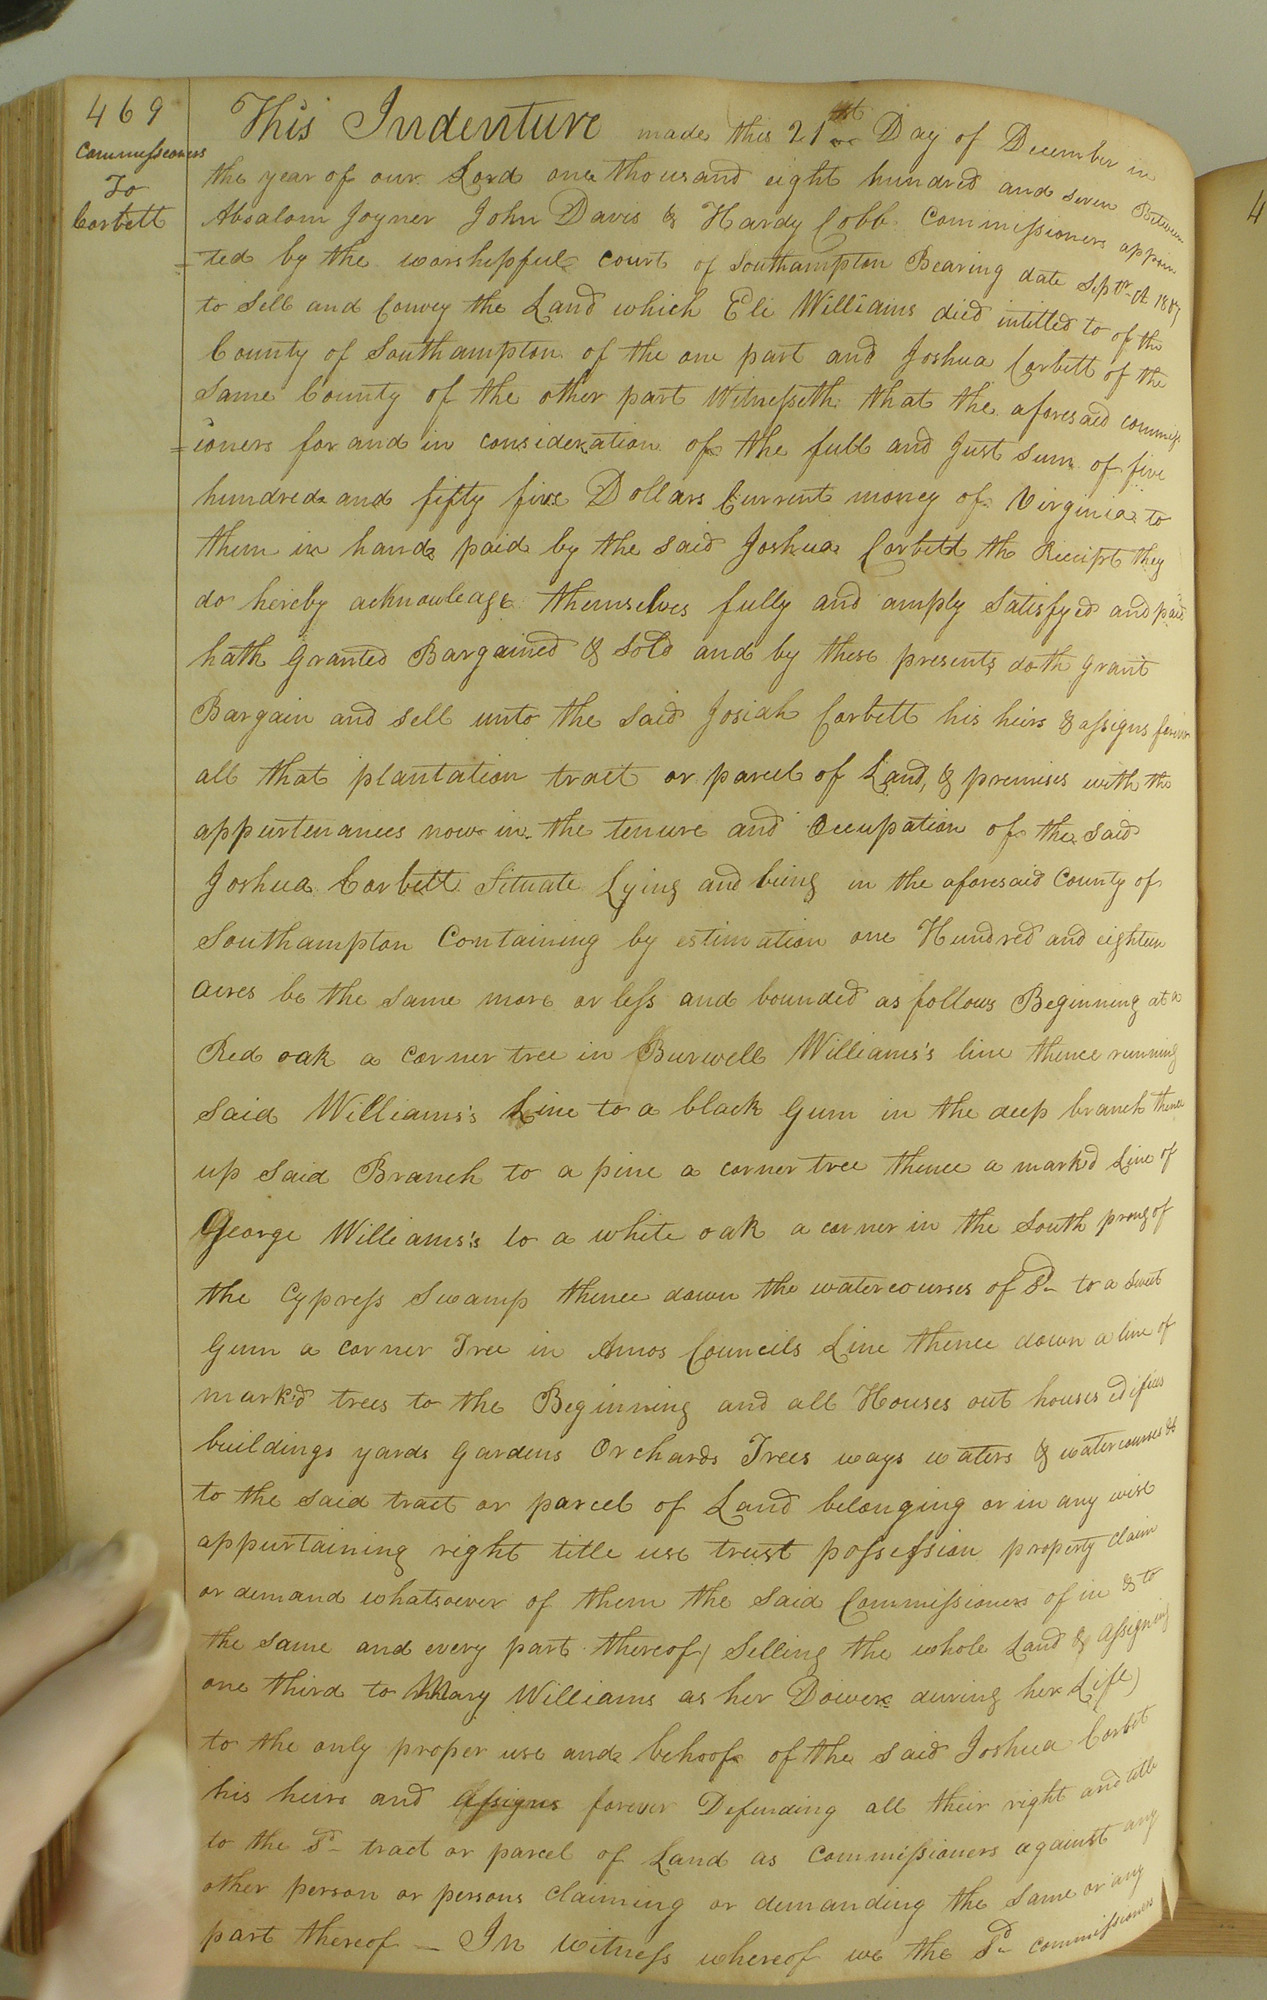 469
Commissioners
To
Corbett
This Indenture made this 21st Day of December in
the year of our Lord one thousand eight hundred and seven Between
Absalom Joyner John Davis & Hardy Cobb Commissioners appoin
=ted by the worshepful Court of Southampton Bearing date Septr. Ct. 1807
to Sell and Convey the Land which Eli Williams died intitled to of the
County of Southampton of the one part and Joshua Corbett of the
Same County of the other part Witnesseth that the aforesaid commiss
=ioners for and in consideration of the full and Just sum of five
hundred and fifty five Dollars Current money of Virginia to
them in hand paid by the said Joshua Corbett the Receipt they
do hereby acknowledge themselves fully and amply Satisfyed and paid
hath Granted Bargained & Sold and by these presents doth grant
Bargain and sell unto the said Josiah Corbett his heirs & assigns forever
all that plantation tract or parcel of Land, & premises with the
appurtenances now in the tenure and Occupation of the said
Joshua Corbett Situate Lying and being in the aforesaid County of
Southampton Containing by estimation one Hundred and eighteen
acres be the same more or less and bounded as follows Beginning at a
Red oak a corner tree in Burwell Williams's line thence running
said Williams's Line to a black Gum in the deep branch thence
up said Branch to a pine a corner tree thence a mark'd Line of
George Williams's to a white oak a corner in the South prong of
the Cypress Swamp thence down the watercourses of Sd. to a Sweet
Gum a corner Tree in Amos Councils Line thence down a line of
mark'd trees to the Beginning and all Houses out houses edifices
buildings yards Gardens Orchards Trees ways waters & watercourses &c
to the said tract or parcel of Land belonging or in any wise
appurtaining right title use trust possession property claim
or demand whatsoever of them the said Commissioners of in & to
the same and every part thereof (Selling the whole Land & assigning
one third to Mary Williams as her Dower during her Life)
to the only proper use and behoof of the said Joshua Corbit
his heirs and assigns forever Defending all their right and title
to the Sd. tract or parcel of Land as Commissioners against any
other person or persons claiming or demanding the same or any
part thereof — In witness whereof we the Sd. commissioners
4